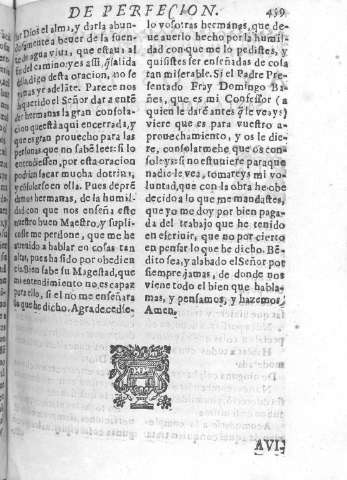 DE PERFECION. 459
Dios el alma, y darla abun-
damente a beuer de la fuen-
de agua viua, que estaua al
del camino: y es assi, q̃ salida
digo desta oracion, no se
mas yr adelãte. Parece nos
querido el Señor dar a entẽ
hermanas la gran consola-
cion que està aqui encerrada, y
es gran prouecho para las
personas que no sabẽ leer: si lo
entendiessen, por esta oracion
podrian sacar mucha dotrina,
y cõsolarse en ella. Pues depre
damos hermanas, de la humil-
dad con que nos enseña este
nuestro buen Maestro, y supli-
me perdone, que me he
atreuido a hablar en cosas tan
altas, pues ha sido por obedien
cia. Bien sabe su Magestad, que
mi entendimiento no es capaz
para ello, si el no me enseñara
lo que he dicho. Agradecedse-
lo vosotras hermanas, que de-
ue auerlo hecho por la humil-
dad con que me lo pedistes, y
quisistes ser enseñadas de cosa
tan miserable. Si el Padre Pre-
sentado Fray Domingo Ba-
ñes, que es mi Confessor (a
quien le darè antes q̃ le veays)
viere que es para vuestro a-
prouechamiento, y os le die-
re, consolarmehe que os con-
soleys: si no estuuiere para que
nadie le vea, tomareys mi vo-
luntad, que con la obra he obe
decido a lo que me mandastes,
que yo me doy por bien paga-
da del trabajo que he tenido
en escriuir, que no por cierto
en pensar lo que he dicho. Bẽ-
dito sea, y alabado el Señor por
siempre jamas, de donde nos
viene todo el bien que habla-
mas, y pensamos, y hazemos,
Amen.
AVI-